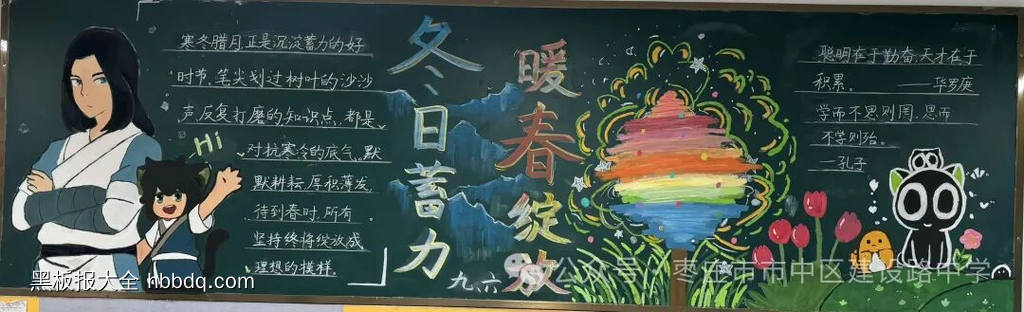 寒冬腊月,正是沉淀蓄力的好
时节,笔尖划过树叶的沙沙
声,反复打磨的知识点,都是
对抗寒冷的底气。默
默耕耘,厚积薄发,
待到春时,所有
坚持终将绽放成
理想的模样。
Hi
冬日蓄力
暖春绽放
九、六
聪明在于勤奋,天才在于
积累。 ——华罗庚
学而不思则罔,思而
不学则殆。
—孔子
黑板报大全 hbbdq.com
公众号·枣庄市市中区建设路中学